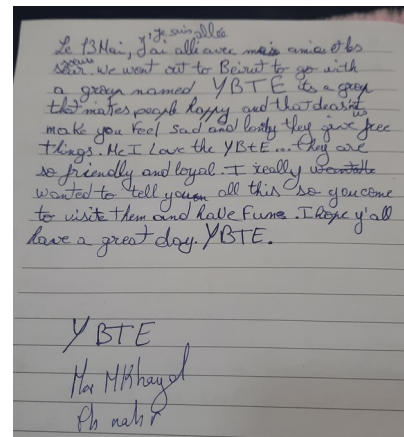 j'Je suis allée
Le 13 Mai, j'ai alli avec mais amies et les
sœur. We went out to Beirut to go with
a group named YBTE its a group
that makes people happy and that doesn't
make you feel sad and lonly they give us free
things. Me I Love the YBTE... they are
so friendly and loyal. I really
wanted to tell you all this so you come
to visite them and have Fune. I hope y'all
have a great day. YBTE.
YBTE
Mar Mkhayel